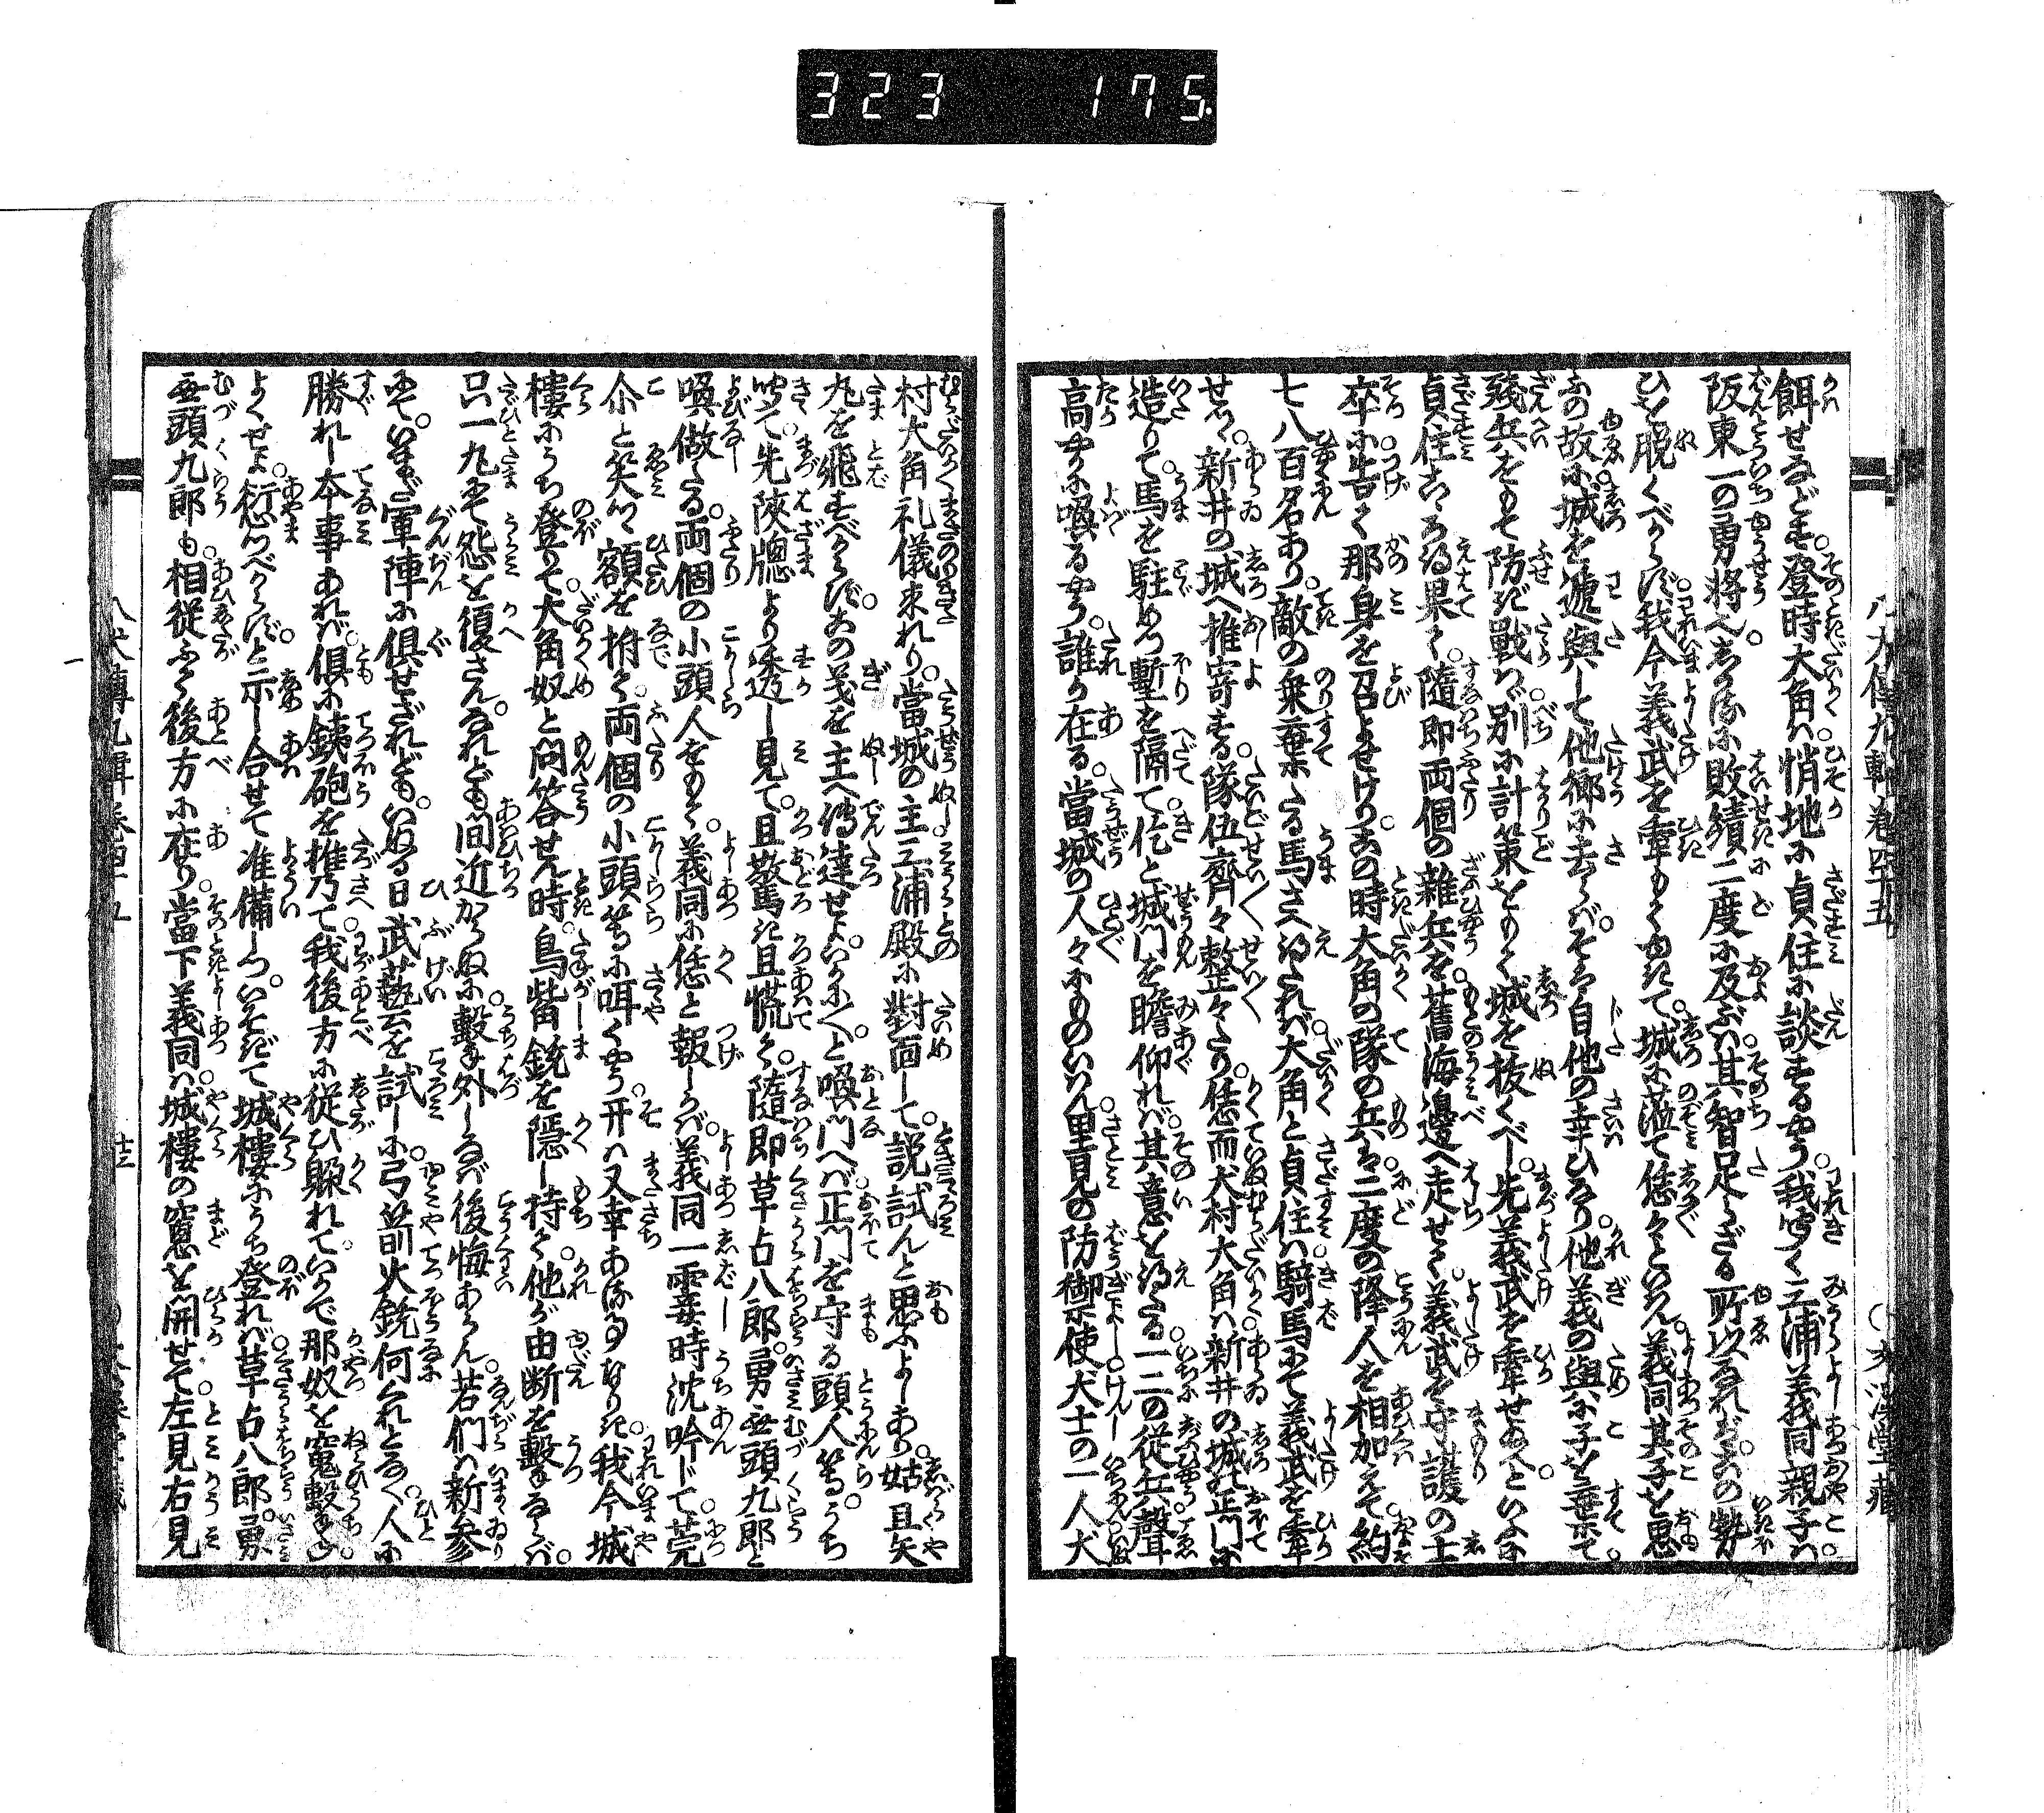 323 175
餌せなどす。登時大角ハ悄地に貞住に談ずるやう。我聞く三浦義同親子ハ
阪東一の勇將也。しかるに敗績二度に及ぶハ其智足らざる所以なれども。その勢
ひを脱くべからず。我今義武を牽もてゆきて。城に莅て恁々といはん。義同其子を思
ふの故に城を遞與して他郷に去らバ。そハ自他の幸ひなり。他義の與に子を棄て
殘兵をもて防ぎ戰ハバ。別に計策をもて城を拔くべし。先義武を牽せ給へといふに
貞住こゝろ得果て。隨即両個の雜兵を舊海邊へ走せて。義武を守護の士
卒に告て那身を召よせけり。この時大角の隊の兵ハ二度の降人を相加えて約
七八百名あり。敵の乗棄たる馬さへ得たれバ。大角と貞住ハ騎馬にて義武を牽
せつゝ。新井の城へ推寄する。隊伍齊々整々たり。恁而犬村大角ハ新井の城の正門に
造りて馬を駐めつ塹を隔て。佶と城門を瞻仰れバ。其意を得たる一二の従兵聲
高やかに喚るやう。誰か在る。當城の人々にものいはん。里見の防禦使犬士の一人犬
八犬傳九輯巻四十五
村大角礼儀来れり。當城の主三浦殿に對面して。説試んと思ふよしあり。姑且矢
丸を飛すべからず。この義を主へ傳達せよ。いかにへと喚門へバ。正門を守る頭人等。うち
聞て先陜牕より透し見て。且驚き且慌て。隨即草占八郎。勇無頭九郎と
喚做たる。両個の小頭人をもて。義同に恁と報しかバ。義同一霎時沈吟じて。莞
尓と笑つゝ額を拊て。両個の小頭等に咡くやう。开ハ又幸あることなりき。我今城
樓にうち登りて。大角奴と問答せん時。鳥觜銃を隠し持て。他が由断を撃ならバ。
只一丸にて怨を復さん。なれども間近からぬに。撃外しなバ後悔あらん。若們ハ新参
にて。いまだ軍陣に俱せざれども。いぬる日武藝を試しに。弓箭火銃何くれとなく。人に
勝れし本事あれバ。俱に銕砲を推乃て。我後方に従ひ躱れて。いかで那奴を窺撃に
よくせよ。愆つべからずと示し合せて准備しつ。いそぎて城樓にうち登れバ。草占八郎。勇
無頭九郎も。相従ふて後方に在り。當下義同ハ。城樓の窓を開せて。左見右見